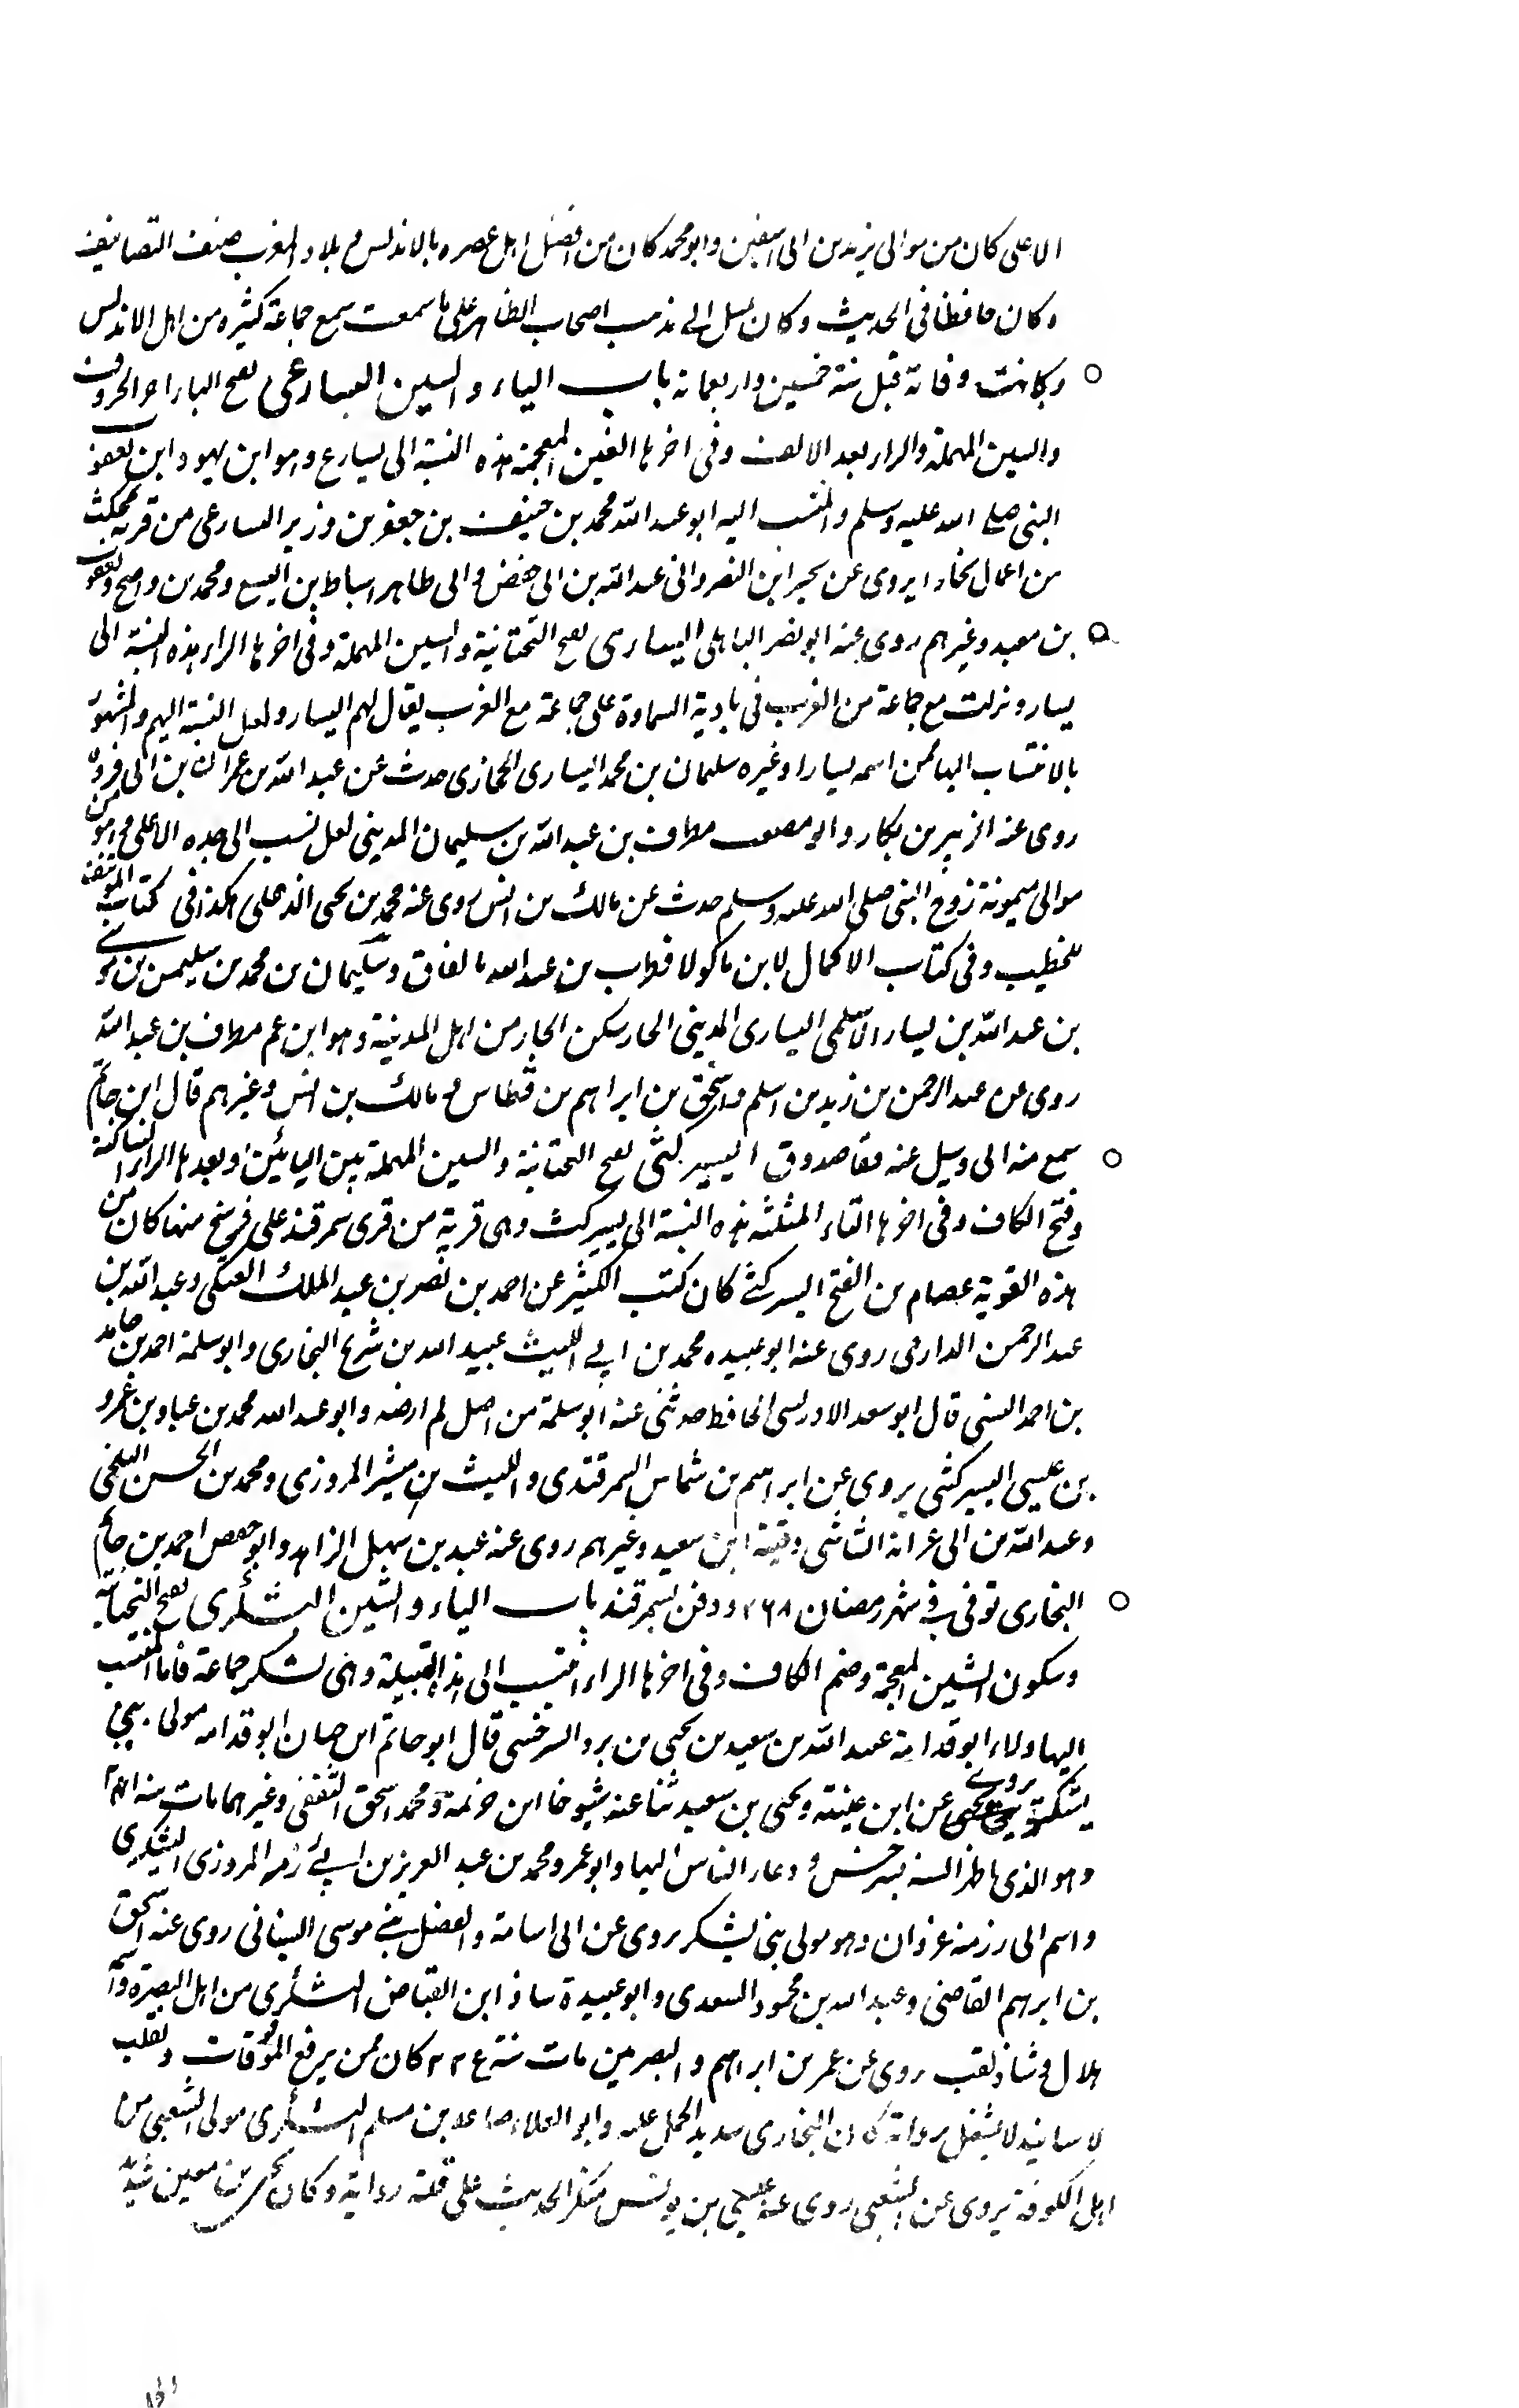 الاعلى كان من موالى يزيد بن ابى سفين وابو محمد كان من افضل اهل عصره بالاندلس و بلاد المغرب صنف التصانيف
وكان حافظا فى الحديث وكان يميل الى مذهب اصحاب الظاهر على ما سمعت سمع جماعة كثيره من اهل الاندلس
وكانت وفاته قبل سنة خمسين واربعمائة باب الياء والسين اليسارغى بفتح الياء اخر الحروف
والسين المهملة والراء بعد الالف وفى اخرها الغين المعجمة هذه النسبة الى يسارغ وهو ابن يهودا بن يعقوب
النبى صلى الله عليه وسلم والمنتسب اليه ابو عبد الله محمد بن حنيف بن جعفر بن وزير اليسارغى من قرية
من اعمال بخارا يروى عن بحير ابن النضر وابى عبد الله بن ابى حفص وابى طاهر اسباط بن اليسع ومحمد بن واضح ويعقوب
بن معبد وغيرهم روى عنه ابو نصر الباهلى اليسارى بفتح التحتانية والسين المهملة وفى اخرها الراء هذه النسبة الى
يسار ونزلت مع جماعة من العرب فى بادية السماوة على جماعة مع العرب يقال لهم اليسار ولعل النسبة اليهم والمشهور
بالانتساب اليها ممن اسمه يسارا وغيره سليمان بن محمد اليسارى الحجازى حدث عن عبد الله بن عمران بن ابى فروة
روى عنه الزبير بن بكار وابو مصعب مطرف بن عبد الله بن سليمان المدينى لعل نسب الى جده الاعلى وهو من
موالى ميمونة زوج النبى صلى الله عليه وسلم حدث عن مالك بن انس روى عنه محمد بن يحيى الذهلى هكذا فى كتاب المؤتنف
للخطيب وفى كتاب الاكمال لابن ماكولا قطاب بن عبد الله بالقاف وسليمان بن محمد بن سليمن بن موسى
بن عبد الله بن يسار الاسلمى اليسارى المدينى الجار سكن الجار من اهل المدينة وهو ابن عم مطرف بن عبد الله
روى عن عبد الرحمن بن زيد بن اسلم واسحق بن ابراهيم بن قسطاس و مالك بن انس وغيرهم قال ابن حاتم
سمع منه ابى وسئل عنه فقا صدوق اليسيركثى بفتح التحتانية والسين المهملة بين اليائين وبعدها الراء الساكنة
وفتح الكاف وفى اخرها الثاء المثلثة هذه النسبة الى يسيركث وهى قرية من قرى سمرقند على فرسخ منها كان من
هذه القرية عصام بن الفتح اليسيركثى كان كتب الكثير عن احمد بن نصر بن عبد الملك العتكى وعبد الله بن
عبد الرحمن الدارمى روى عنه ابو عبيده محمد بن ابى الليث عبيد الله بن شريح البخارى وابو سلمة احمد بن حامد
بن احمد السنى قال ابو سعد الادريسى الحافظ حدثنى عنه ابو سلمة من اصل لم ارضه وابو عبد الله محمد بن عباد بن عمرو
بن عيسى اليسيركثى يروى عن ابراهيم بن شماس السمرقندى والليث بن مبشر المروزى ومحمد بن الحسن البلخى
وعبد الله بن ابى عرابة الشاشى وقتيبة ابن سعيد وغيرهم روى عنه عبد بن سهل الزاهد وابو حفص احمد بن حاتم
البخارى توفى فى شهر رمضان ٢٦٨ ودفن بسمرقند باب الياء والشين اليشكرى بفتح التحتانية
وسكون الشين المعجمة وضم الكاف وفى اخرها الراء انتسب الى هذا القبيلة وهى يشكر جماعة فاما المنتسب
اليها ولاء ابو قدامة عبيد الله بن سعيد بن يحيى بن برد السرخسى قال ابو حاتم ابن حبان ابو قدامه مولى بنى
يشكر يروى عن ابن عيينة ويحيى بن سعيد ثنا عنه شيوخنا ابن خزيمة ومحمد اسحق الثقفى وغيرهما مات سنة ٢٤١
وهو الذى اظهر السنة بسرخس و دعا الناس اليها وابو عمرو محمد بن عبد العزيز بن ابى رزمة المروزى اليشكرى
واسم ابى رزمة غزوان وهو مولى بنى يشكر يروى عن ابى اسامة والفضل بنى موسى السينانى روى عنه اسحق
بن ابرهيم القاضى وعبد الله بن محمود السعدى وابو عبيدة شاذ ابن الفياض اليشكرى من اهل البصرة واسمه
هلال وشاذ لقب روى عن عمر بن ابراهيم والبصرمين مات سنة ٢٢٤ كان ممن يرفع الموقوفات ويقلب
لاسانيد لا يشتغل بروايته كان البخارى شديد الحمل عليه وابو العلاء صاعد بن مسلم اليشكرى مولى الشعبى من
اهل الكوفة يروى عن الشعبى روى عنه عيسى بن يونس منكر الحديث على قلة روايته وكان يحيى بن معين شديد